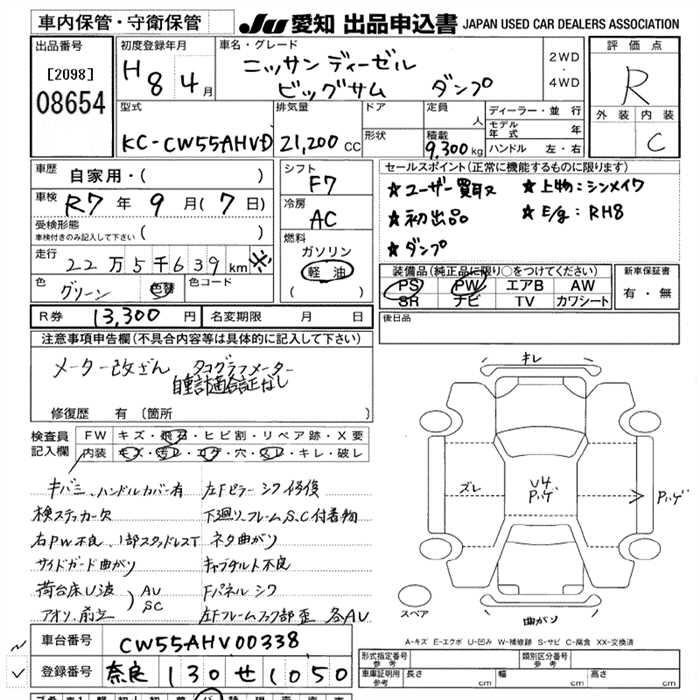 車内保管・守衛保管
JU 愛知 出品申込書 JAPAN USED CAR DEALERS ASSOCIATION
出品番号
[2098]
08654
初度登録年月
H 8 4月
車名・グレード
ニッサンディーゼル
ビッグサム ダンプ
2WD
・
4WD
評価点
R
外装 内装
C
型式
KC-CW55AHVD
排気量
21,200 CC
ドア
形状
定員
人
積載
9,300 kg
ディーラー・並行
モデル年式 年
ハンドル 左・右
車歴
自家用・( )
車検
R7 年 9 月 ( 7 日)
受検形態
車検付きのみ記入して下さい ( )
走行
22万5千639km
色
グリーン 色替
色コード
シフト
F7
冷房
AC
燃料
ガソリン
軽油
( )
セールスポイント(正常に機能するものに限ります)
★ユーザー買取 ★上物:シンメイワ
★初出品 ★E/g:RH8
★ダンプ
装備品(純正品に限り○をつけてください)
PS PW エアB AW
SR ナビ TV カワシート
新車保証書
有・無
後日品
R券 13,300 円
名変期限 月 日
注意事項申告欄(不具合内容等は具体的に記入して下さい)
メーター改ざん タコグラフメーター
自重計適合証なし
修復歴 有 [箇所 ]
検査員
記入欄
FW キズ・飛石・ヒビ割・リペア跡・X要
内装 キズ・汚レ・コゲ・穴・スレ・キレ・破レ
キバミ、ハンドルカバー有
検ステッカー欠
右PW不良、1部スタッドレスT
サイドガード曲がり
荷台床U波
アオリ、前立
AU
SC
左Fピラーシワ修復
下廻り、フレームS,C付着物
ネタ曲がり
キャブチルト不良
Fパネルシワ
左Fフレームフック部歪 各AU
キレ
ズレ
U4
Pハゲ
Pハゲ
曲がり
スペア
A-キズ E-エクボ U-凹み W-補修跡 S-サビ C-腐食 XX-交換済
車台番号 CW55AHV00338
登録番号 奈良 130 せ 1050
形式指定番号
参考
類別区分番号
参考
車庫証明用
参考
長さ cm
幅 cm
高さ cm